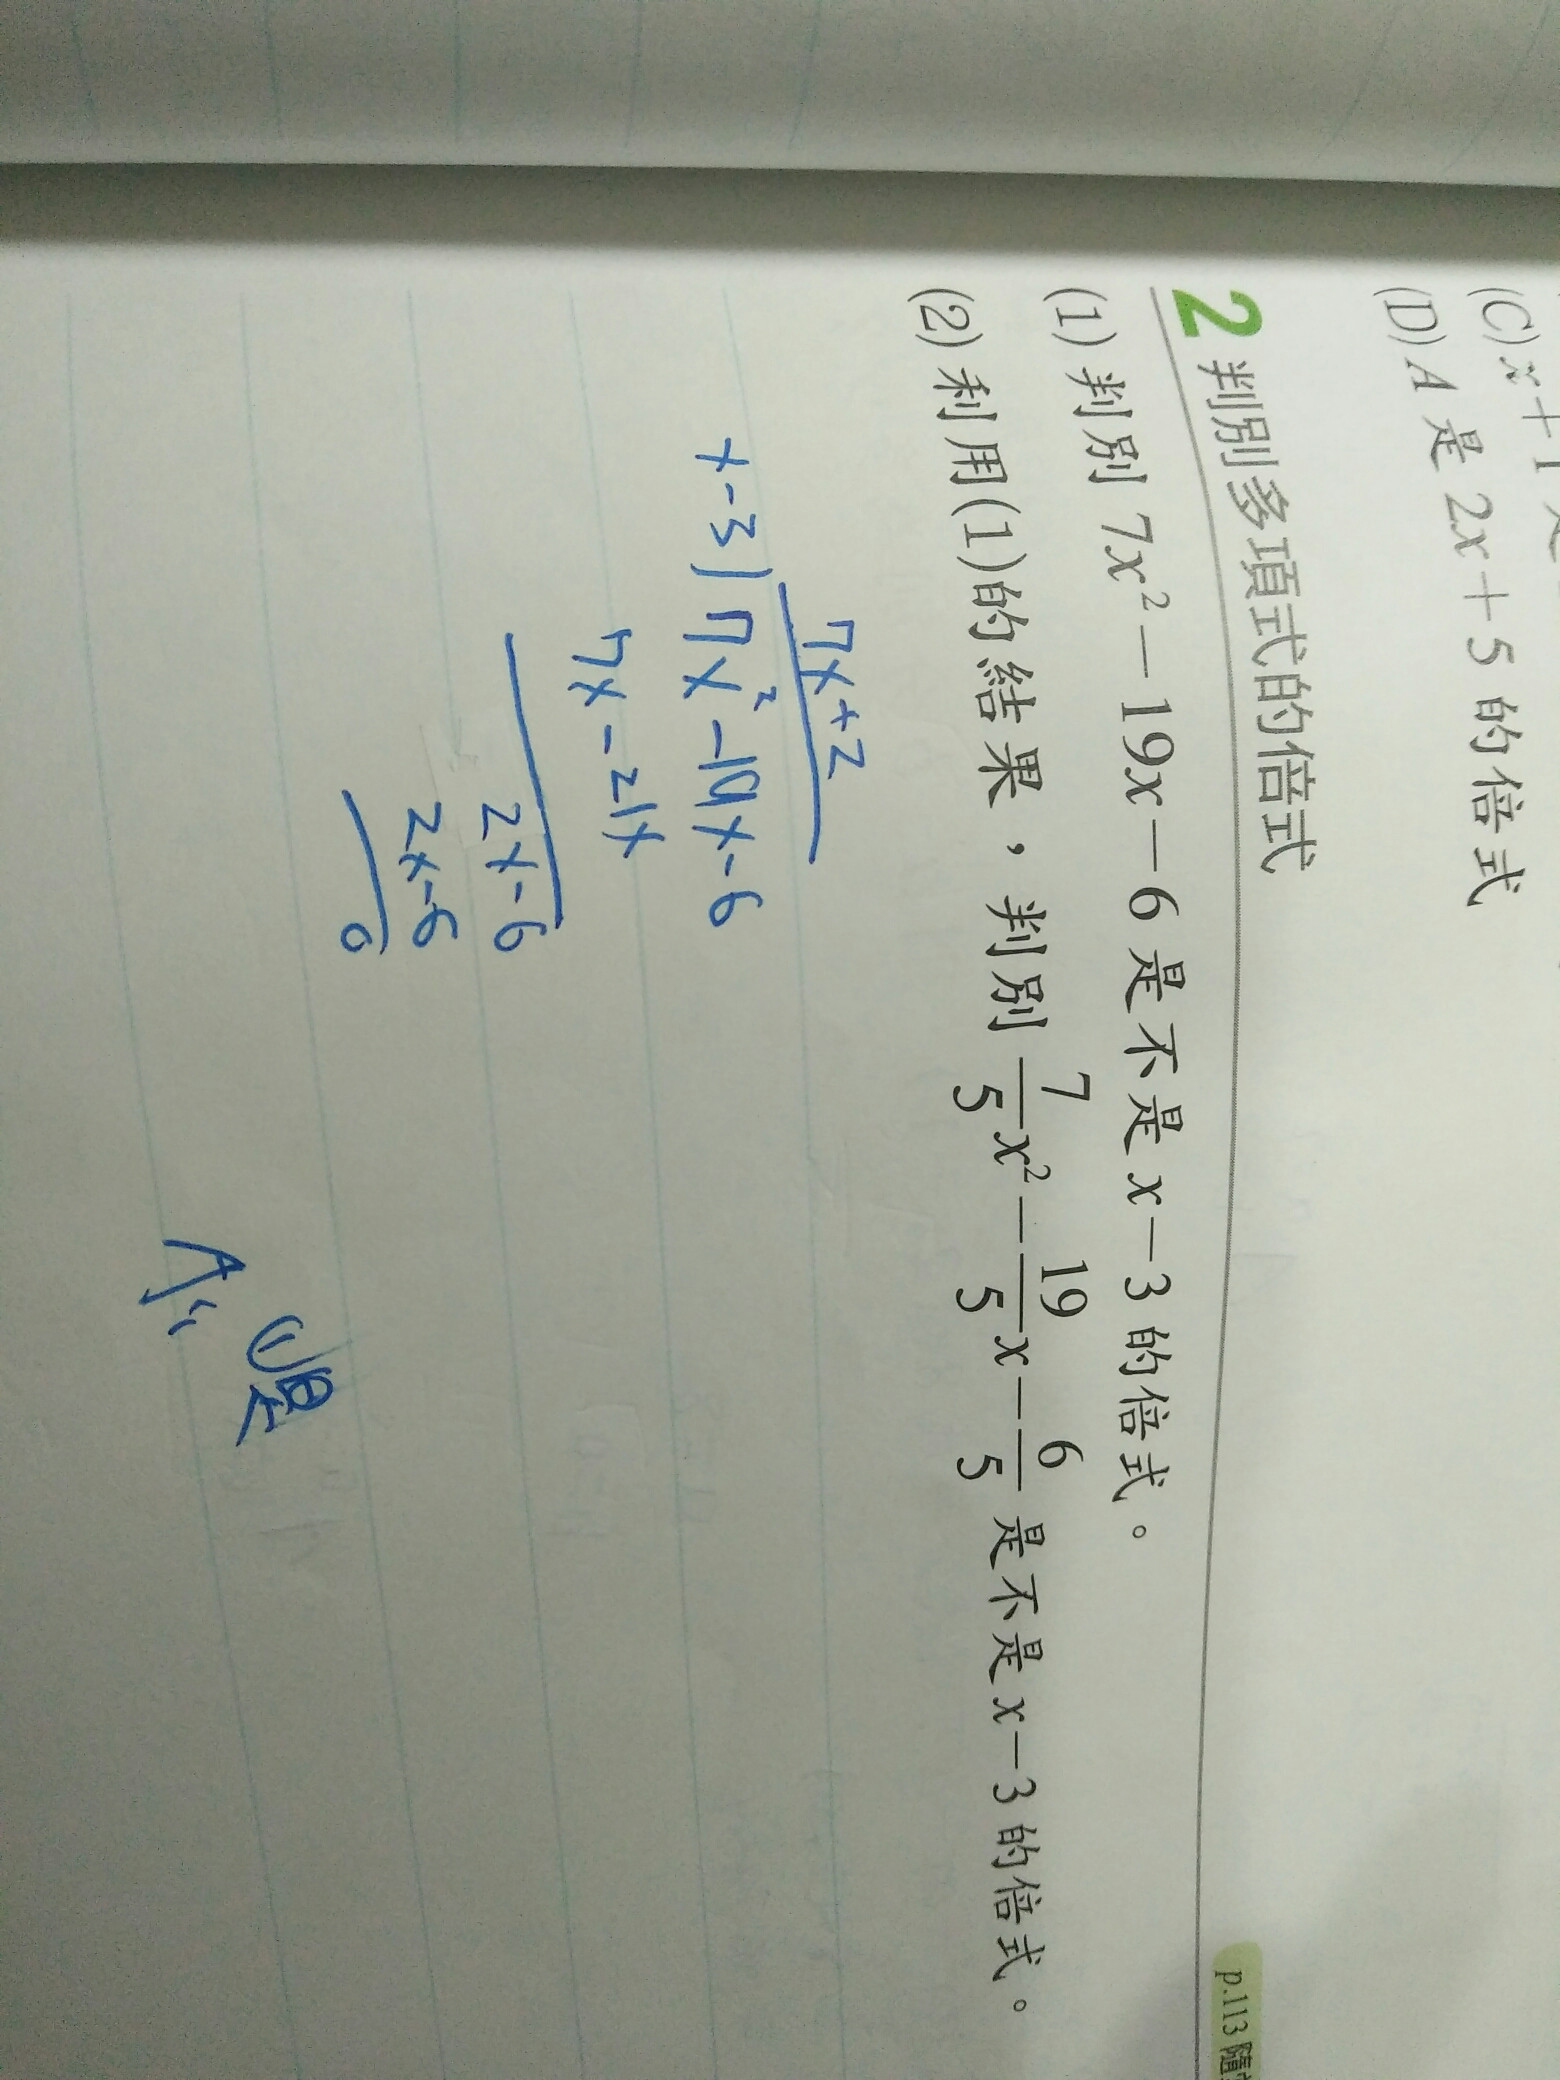 (C) x+1是
(D) A 是 2x+5 的倍式
2 判別多項式的倍式
p.113 隨
(1) 判別 7x²-19x-6 是不是 x-3 的倍式。
(2) 利用(1)的結果，判別 7/5x²-19/5x-6/5 是不是 x-3 的倍式。
7x+2
x-3)7x²-19x-6
7x-21x
2x-6
2x-6
0
(1)是
A: